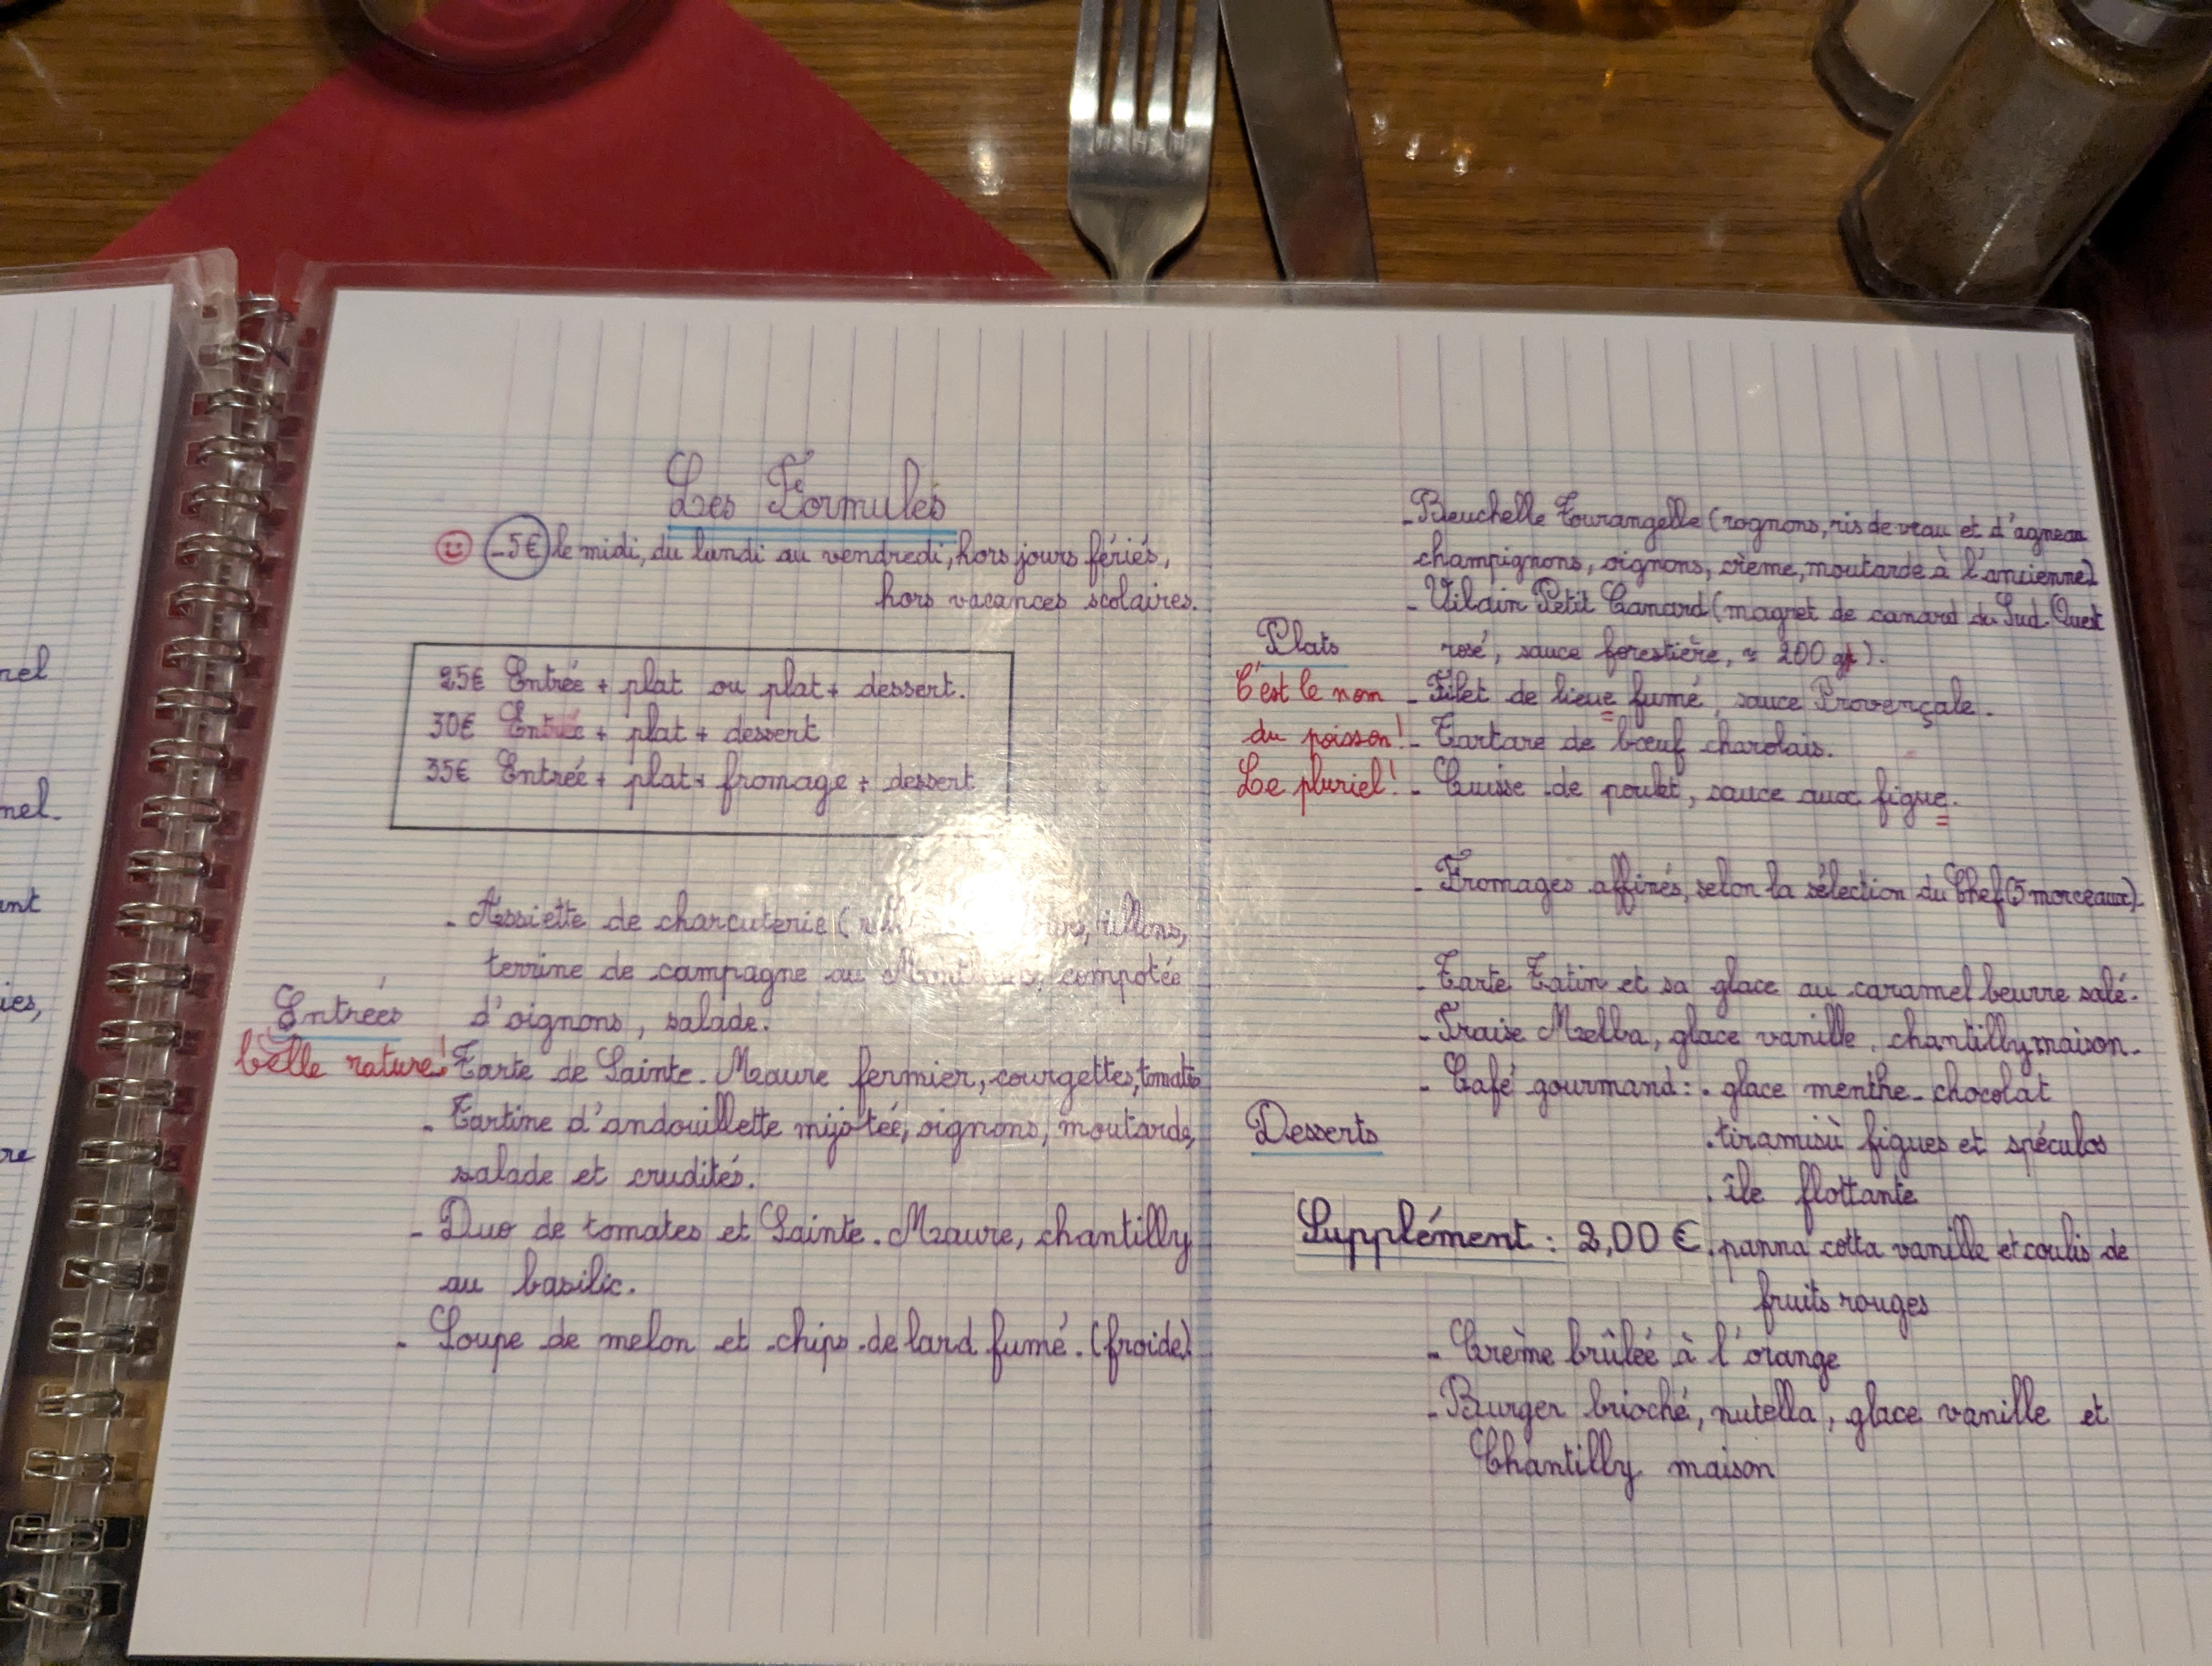 Les Formules
-5€ le midi, du lundi au vendredi, hors jours fériés,
hors vacances scolaires.
25€ Entrée + plat ou plat + dessert.
30€ Entrée + plat + dessert
35€ Entrée + plat + fromage + dessert
Entrées
belle rature!
- Assiette de charcuterie (
terrine de campagne au compotée
d'oignons, salade.
Tarte de Sainte-Maure fermier, courgettes, tomates
- Tartine d'andouillette mijotée, oignons, moutarde,
salade et crudités.
- Duo de tomates et Sainte-Maure, chantilly
au basilic.
- Soupe de melon et chips de lard fumé. (froide)
Plats
C'est le nom
du poisson!
Le pluriel!
- Beuchelle Tourangelle (rognons, ris de veau et d'agneau
champignons, oignons, crème, moutarde à l'ancienne)
- Vilain Petit Canard (magret de canard du Sud-Ouest
rosé, sauce forestière, ≈ 200 gr).
- Filet de lieue fumé, sauce Provençale.
- Tartare de bœuf charolais.
- Cuisse de poulet, sauce aux figue.
- Fromages affinés, selon la sélection du Chef (5 morceaux)
Desserts
- Tarte Tatin et sa glace au caramel beurre salé.
- Fraise Melba, glace vanille, chantilly maison.
- Café gourmand : . glace menthe-chocolat
. tiramisù figues et spéculos
. île flottante
Supplément : 2,00 €
. panna cotta vanille et coulis de
fruits rouges
- Crème brûlée à l'orange
- Burger brioché, nutella, glace vanille et
Chantilly maison